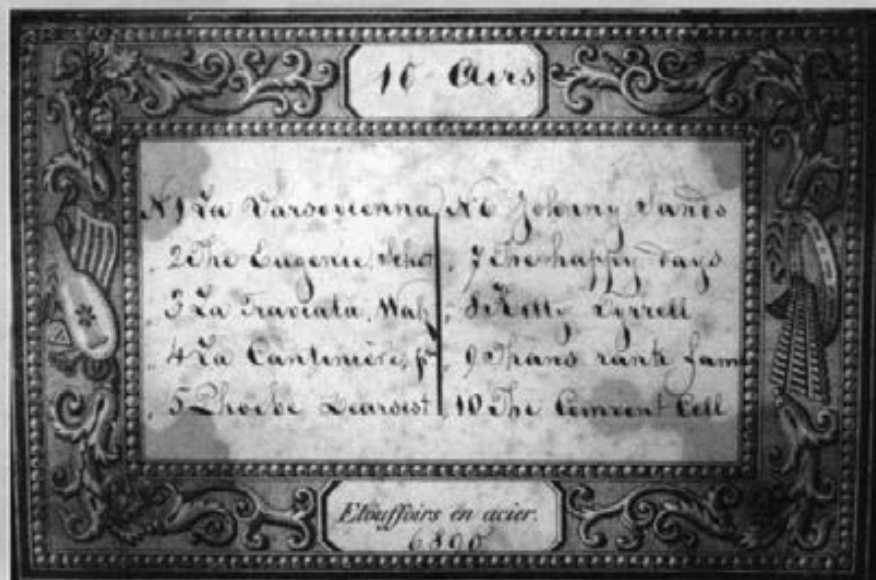 10 Airs
N 1 La Varsovienna
" 2 The Eugenie, Schot
" 3 La Traviata, Walz
" 4 La Cantiniére, p
" 5 Phoebe Dearsest
N 6 Johnny Sands
" 7 The happy days
" 8 Kitty Tyrrell
" 9 rank fame
" 10 The Convent Cell
Etouffoirs en acier.